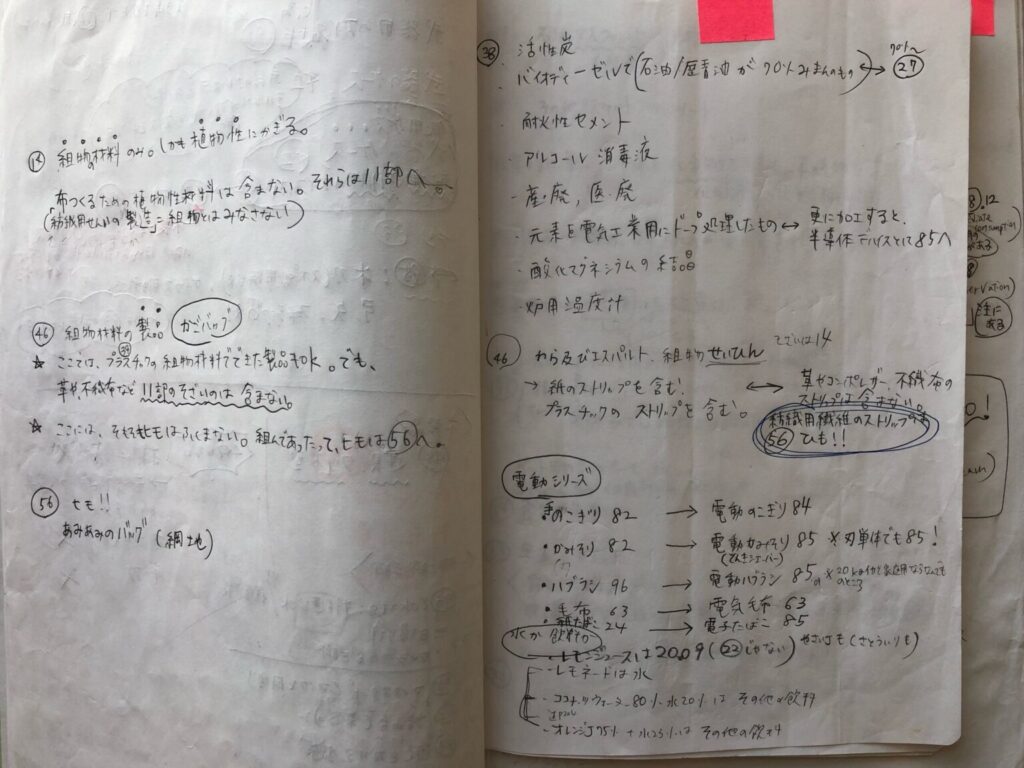 ⑭ 組物材料のみ。しかも植物性にかぎる。
布つくるための植物性材料は含まない。それらは11部へ。
(紡織用せんいの製造=組物とはみなさない)
㊻ 組物材料の製品 かごバッグ
★ ここでは、プラスチックの組物材料でできた製品もOK。でも、
㊴
革や不織布など11部のそざいのは含まない。
★ ここには、そもそもヒモはふくまない。組んであったって、ヒモは㊺へ。
㊺ ヒモ!!
あみあみのバッグ (網地)
㊳ 活性炭
・バイオディーゼルで(石油/歴青油が70%みまんのもの) ↔ ㉗
70%~
・耐火性セメント
・アルコール消毒液
・産廃,医廃
・元素を電気工業用にドープ処理したもの ↔ 更に加工すると、
半導体デバイスとして85へ
・酸化マグネシウムの結晶
・炉用温度計
㊻ わら及びエスパルト、組物せいひん そざいは14
→ 紙のストリップを含む!
プラスチックのストリップを含む。
↔ 革やコンポレザー、不織布の
ストリップは含まない。
紡織用繊維のストリップ
56 ひも!!
電動シリーズ
・のこぎり 82 → 電動のこぎり 84
・かみそり 82 → 電動かみそり 85 ×刃単体でも85!
(でんきシェーバー)
・ハブラシ 96 → 電動ハブラシ 85の
×20kg
のところ
・毛布 63 → 電気毛布 63
24 → 電子たばこ 85
水か飲料か
レモンジュースは20.09 (㉓じゃない) やさいも(さとういりも)
- レモネードは水
- ココナッツウォーター80%、水20%はその他の飲料
- オレンジJ75%+水25%はその他の飲料
12
ある
ervation)
注に
ある